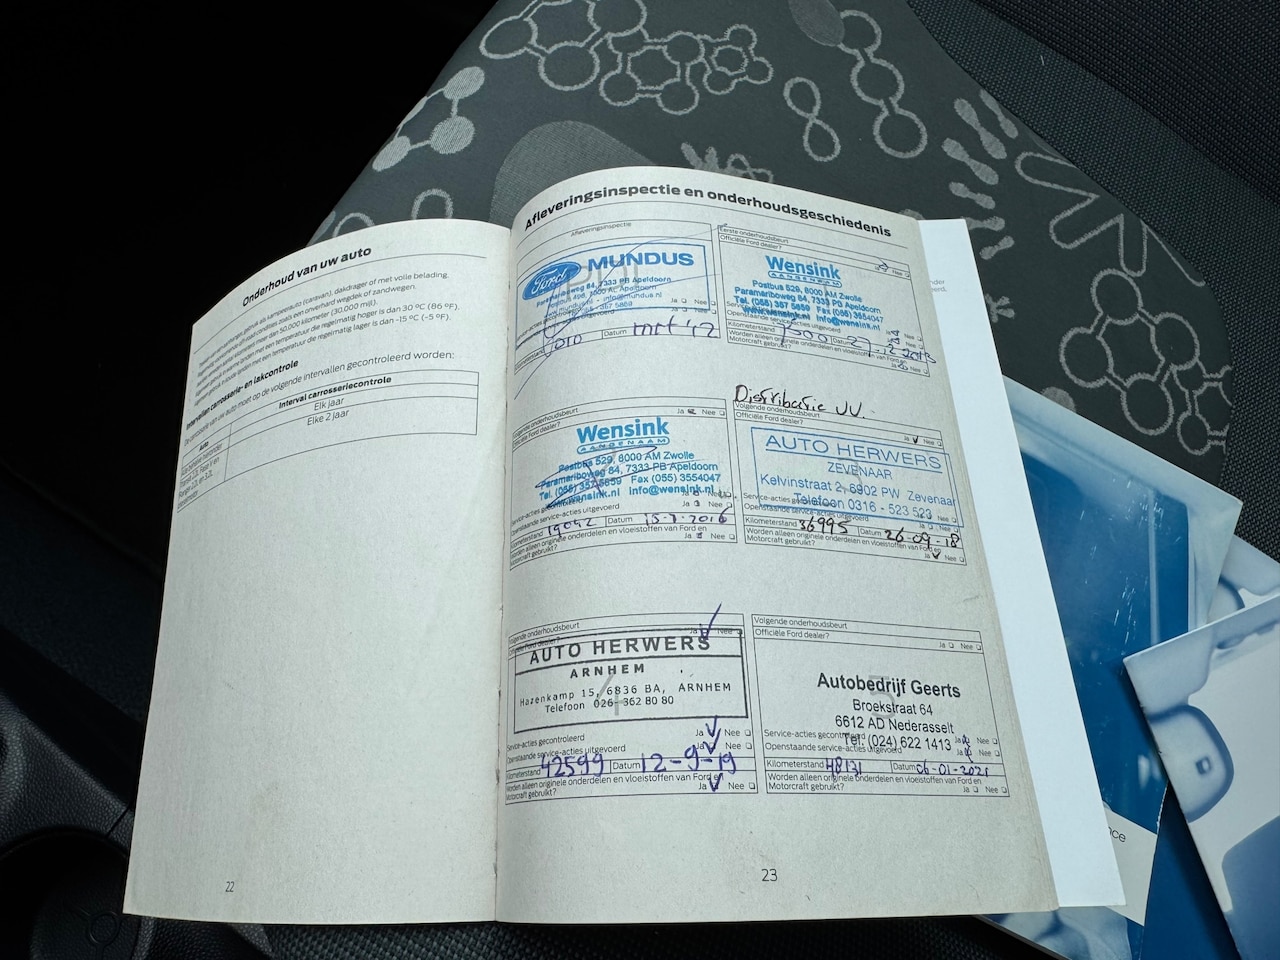 Onderhoud van uw auto
gebruik als kampeerauto (caravan), dakdrager of met volle belading.
meer dan 50.000 kilometer (30.000 mijl).
met een temperatuur die regelmatig hoger is dan 30 °C (86 °F).
met een temperatuur die regelmatig lager is dan -15 °C (-5 °F).
Intervallen carrosserie- en lakcontrole
De carrosserie van uw auto moet op de volgende intervallen gecontroleerd worden:
Auto
Interval carrosseriecontrole
Elk jaar
Elke 2 jaar
22
Afleveringsinspectie en onderhoudsgeschiedenis
Afleveringsinspectie
Ford MUNDUS
Paramariboweg 84, 7333 PB Apeldoorn
Ja Nee
Datum mrt '12
Eerste onderhoudsbeurt
Officiële Ford dealer?
Nee
Wensink
AANGENAAM
Postbus 529, 8000 AM Zwolle
Paramariboweg 84, 7333 PB Apeldoorn
Tel. (055) 357 5859 Fax (055) 3554047
www.wensink.nl info@wensink.nl
Openstaande service-acties uitgevoerd
Kilometerstand Datum
Worden alleen originele onderdelen en vloeistoffen van Ford en
Motorcraft gebruikt?
Ja Nee
Volgende onderhoudsbeurt
Officiële Ford dealer?
Ja Nee
Wensink
AANGENAAM
Postbus 529, 8000 AM Zwolle
Paramariboweg 84, 7333 PB Apeldoorn
Tel. (055) 357 5859 Fax (055) 3554047
www.wensink.nl info@wensink.nl
Openstaande service-acties uitgevoerd
Ja Nee
Kilometerstand 19042 Datum 15-7-2016
Worden alleen originele onderdelen en vloeistoffen van Ford en
Motorcraft gebruikt?
Ja Nee
Distributie VV.
Volgende onderhoudsbeurt
Officiële Ford dealer?
Ja Nee
AUTO HERWERS
ZEVENAAR
Kelvinstraat 2, 6902 PW Zevenaar
Telefoon 0316 - 523 523
Service-acties gecontroleerd
Openstaande service-acties uitgevoerd
Kilometerstand 36995 Datum 26-09-18
Worden alleen originele onderdelen en vloeistoffen van Ford en
Motorcraft gebruikt?
Ja Nee
Volgende onderhoudsbeurt
Officiële Ford dealer?
Ja Nee
AUTO HERWERS
ARNHEM
4
Hazenkamp 15, 6836 BA, ARNHEM
Telefoon 026-362 80 80
Service-acties gecontroleerd
Ja Nee
Openstaande service-acties uitgevoerd
Ja Nee
Kilometerstand 42599 Datum 12-9-19
Worden alleen originele onderdelen en vloeistoffen van Ford en
Motorcraft gebruikt?
Ja Nee
Volgende onderhoudsbeurt
Officiële Ford dealer?
Ja Nee
5
Autobedrijf Geerts
Broekstraat 64
6612 AD Nederasselt
Tel. (024) 622 1413
Service-acties gecontroleerd
Ja Nee
Openstaande service-acties uitgevoerd
Ja Nee
Kilometerstand 48131 Datum 06-01-2021
Worden alleen originele onderdelen en vloeistoffen van Ford en
Motorcraft gebruikt?
Ja Nee
23